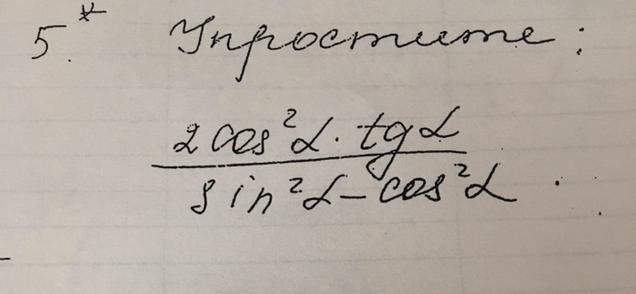 5.* Упростите:
2 cos²α · tg α
sin²α - cos²α .